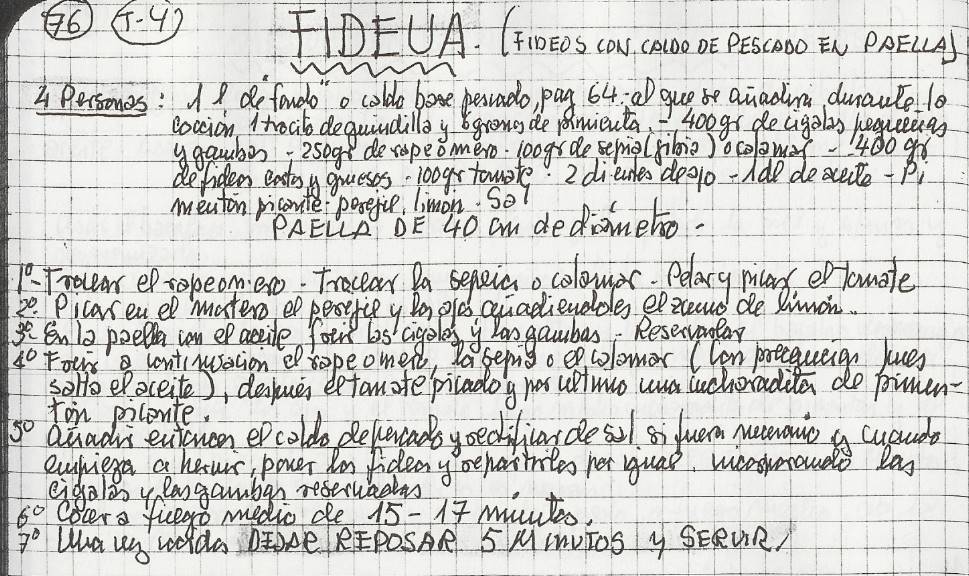 76 T-4)
FIDEUA. (FIDEOS CON CALDO DE PESCADO EN PAELLA)
4 Personas: 1 l de "fondo" o caldo base pescado, pag 64 - al que se añadira durante la
cocción, 1 trocito de guindilla y 6 granos de pimienta. - 400 gr de cigalas pequeñas
y gambas - 250 gr de rape o mero - 100 gr de sepia (jibia) o calamar - 400 gr
de fideos cortos y gruesos - 100 gr tomate - 2 dientes de ajo - 1 dl de aceite - Pi
mentón picante - perejil, limón - Sal
PAELLA DE 40 cm de diámetro -
1º- Trocear el rape o mero - Trocear la sepia o calamar - Pelar y picar el tomate
2º- Picar en el mortero el perejil y los ajos añadiendoles el zumo de limón.
3º- En la paella con el aceite freir las cigalas y las gambas - Reservarlas
4º Freir a continuación el rape o mero, la sepia o el calamar (Con precaución pues
salta el aceite), después el tomate picado y por ultimo una cucharadita de pimen-
tón picante.
5º Añadir entonces el caldo de pescado y rectificar de sal si fuera necesario y cuando
empieza a hervir, poner los fideos y repartirlos por igual, incorporando las
cigalas y las gambas reservadas
6º Cocer a fuego medio de 15 - 17 minutos.
7º Una vez cocidos DEJAR REPOSAR 5 MINUTOS y SERVIR/